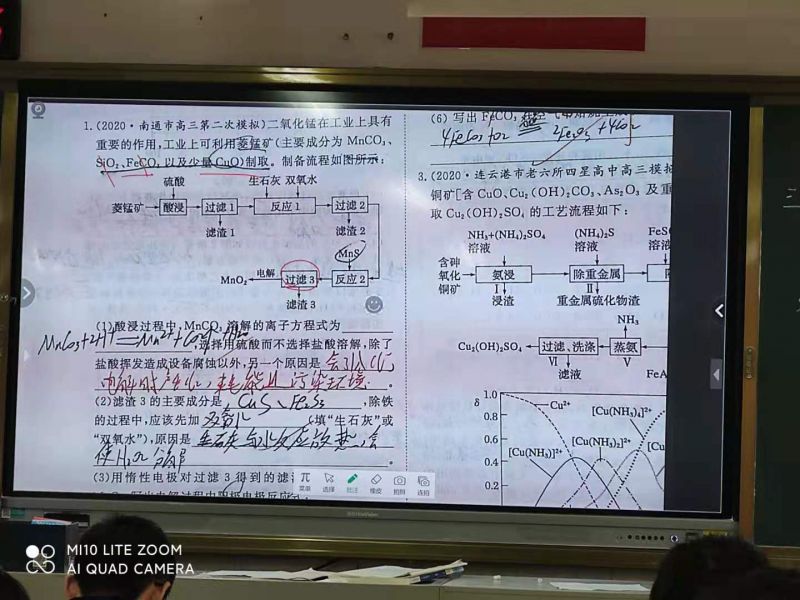 1.(2020·南通市高三第二次模拟)二氧化锰在工业上具有
重要的作用,工业上可利用菱锰矿(主要成分为 MnCO₃、
SiO₂、FeCO₃ 以及少量 CuO)制取。制备流程如图所示:
硫酸
生石灰 双氧水
菱锰矿
酸浸
过滤1
反应1
过滤2
滤渣1
滤渣2
MnS
MnO₂
电解
过滤3
反应2
滤渣3
(1)酸浸过程中,MnCO₃ 溶解的离子方程式为
MnCO₃+2H⁺
选择用硫酸而不选择盐酸溶解,除了
盐酸挥发造成设备腐蚀以外,另一个原因是
污染环境
(2)滤渣 3 的主要成分是
CuS
,除铁
的过程中,应该先加
双氧水
(填“生石灰”或
“双氧水”),原因是
生石灰与水反应放热,会
使H₂O₂分解
(3)用惰性电极对过滤 3 得到的滤
菜单
选择
批注
橡皮
拍照
连拍
(6) 写出 FeCO₃
3.(2020·连云港市老六所四星高中高三模拟
铜矿[含 CuO、Cu₂(OH)₂CO₃、As₂O₃ 及重
取 Cu₂(OH)₂SO₄ 的工艺流程如下:
NH₃+(NH₄)₂SO₄
溶液
(NH₄)₂S
溶液
FeSO
溶液
含砷
氧化
铜矿
氨浸
Ⅰ
浸渣
除重金属
Ⅱ
重金属硫化物渣
NH₃
Cu₂(OH)₂SO₄
过滤、洗涤
Ⅵ
滤液
蒸氨
Ⅴ
FeA
δ
1.0
0.8
0.6
0.4
0.2
Cu²⁺
[Cu(NH₃)₄]²⁺
[Cu(NH₃)]²⁺
[Cu(NH₃)₂]²⁺
[Cu(NH₃
MI10 LITE ZOOM
AI QUAD CAMERA